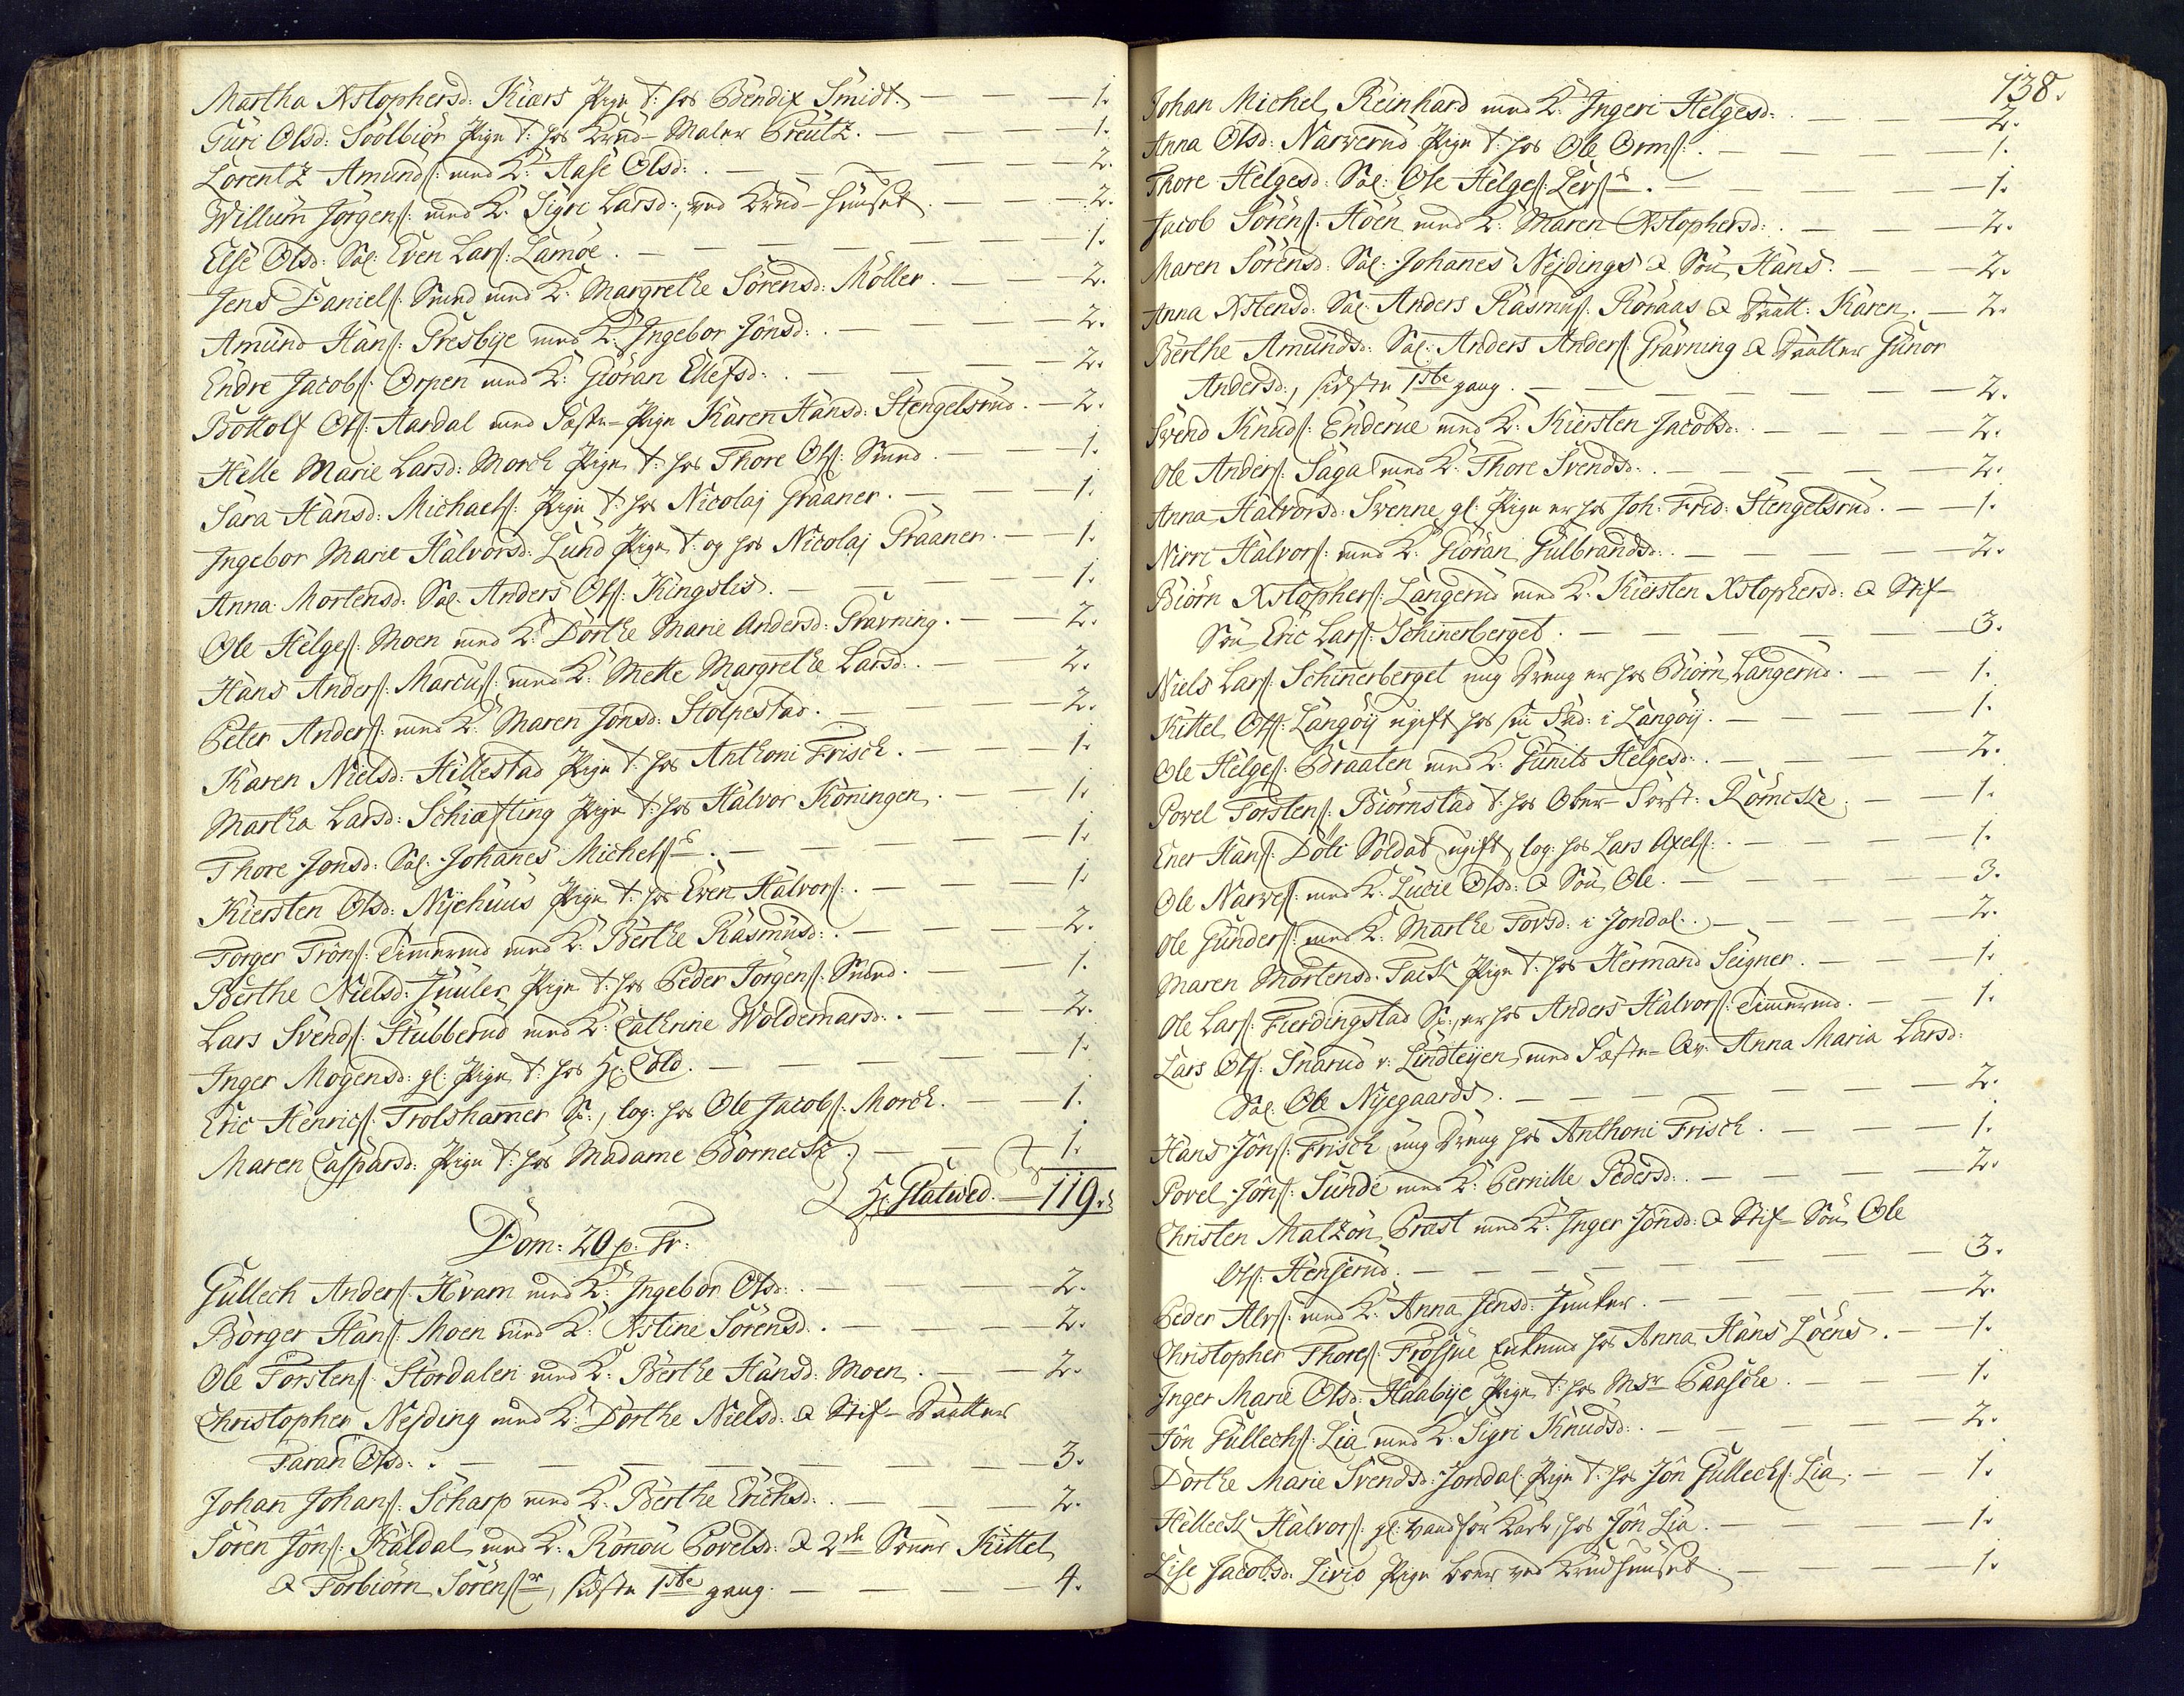 Martha Xstophersd: Kiærs Pige t: hos Bendix Smidt. — — 1.
Guri Olsd: Soolbiør Pige t: hos Krud-Maler Creutz. — — 1.
Lorentz Amunds: med K: Aase Olsd: . — — — 2.
Willum Jörgens: med K: Sigri Larsd:, ved Krud-Huuset. — — 2.
Else Olsd: Sal: Even Lars: Lamoe. — — — — 1.
Jens Daniels: Smed med K: Margrethe Sörensd: Möller. — — 2.
Amund Hans: Presbye med K: Ingebor Jonsd: . — — — 2.
Endre Jacobs: Orpen med K: Giöran Ellefsd: . — — — 2.
Bottolf Ols: Aardal med Fæste-Pige Karen Hansd: Stengelsrud. — 2.
Helle Marie Larsd: Morch Pige t: hos Thore Ols: Smed. — — 1.
Sara Hansd: Michaels: Pige t: hos Nicolaj Graaner. — — 1.
Ingebor Marie Halvorsd: Lund Pige t: og hos Nicolaj Graaner. — 1.
Anna Mortensd: Sal: Anders Ols: Kingslis. — — — 1.
Ole Helges: Moen med K: Dorthe Marie Andersd: Gravning. — — 2.
Hans Anders: Marcus: med K: Mette Margrethe Larsd: . — — 2.
Peter Anders: med K: Maren Jonsd: Stolpestad. — — — 2.
Karen Nielsd: Hillestad Pige t: hos Anthoni Frisch. — — — 1.
Martha Larsd: Schiæfting Pige t: hos Halvor Koningen. — — 1.
Thore Jonsd: Sal: Johanes Michels: . — — — 1.
Kiersten Olsd: Nyehuus Pige t: hos Even Halvors: . — — 1.
Torger Trons: Timmermd med K: Berthe Rasmusd: . — — 2.
Berthe Nielsd: Juuler Pige t: hos Peder Jörgens: Smed. — — 1.
Lars Svends: Stubberud med K: Cathrine Woldemarsd: . — — 2.
Inger Mogensd: gl: Pige t: hos Hr Cold. — — — 1.
Eric Henrics: Trolshamer S:, log: hos Ole Jacobs: Morch. — — 1.
Maren Caspersd: Pige t: hos Madame Börneck. — — 1.
Hr. Glatved. — 119.
Dom: 20 p. Tr:
Gullech Anders: Hvam med K: Ingebor Olsd: . — — — 2.
Börger Hans: Moen med K: Xstine Sörensd: . — — — 2.
Ole Torstens: Stordalen med K: Berthe Hansd: Moen. — — 2.
Christopher Nejding med K: Dorthe Nielsd: & Stif-Daatter
Taran Olsd: . — — — — — 3.
Johan Johans: Scharp med K: Berthe Erichsd: . — — — 2.
Sören Jöns: Kaldal med K: Ronou Povelsd: & 2de Sönner Kittel
& Torbiörn Sörens:, sidste 1ste gang. — — — 4.
138.
Johan Michel Reinhard med K: Ingeri Helgesd: . — — — 2.
Anna Olsd: Narverud Pige t: hos Ole Orms: . — — — 1.
Thore Helgesd: Sal: Ole Helges: Lers: . — — — 1.
Jacob Sörens: Hoen med K: Maren Xstophersd: . — — 2.
Maren Sörensd: Sal: Johanes Nejdings & Sön Hans. — — 2.
Anna Xstensd: Sal: Anders Rasmus: Roraas & Daatt: Karen. — 2.
Berthe Amundsd: Sal: Anders Anders: Gravning & Daatter Gunor
Andersd:, sidste 1ste gang. — — — — 2.
Svend Knuds: Enderue med K: Kiersten Jacobsd: . — — 2.
Ole Anders: Saga med K: Thore Svendsd: . — — — 2.
Anna Halvorsd: Svenne gl: Pige er hos Joh: Fred: Stengelsrud. — — 1.
Nirri Halvors: med K: Giöran Gulbrandsd: . — — — 2.
Biörn Xstophers: Langerud med K: Kiersten Xstophersd: & Stif-
Sön Eric Lars: Schinerberget. — — — — 3.
Niels Lars: Schinerberget ung Dreng er hos Biörn Langerud. — — 1.
Kittel Ols: Langöy ugift hos sin Fad: i Langöy. — — 1.
Ole Helges: Braaten med K: Gunild Helgesd: . — — 2.
Povel Torstens: Biörnstad t: hos Ober-Först: Römcke. — — 1.
Ener Hans: Döli Soldat ugift, log: hos Lars Axels: . — — 1.
Ole Narves: med K: Lucie Olsd: & Sön Ole. — — — 3.
Ole Gunders: med K: Marthe Tovsd: i Jondal. — — — 2.
Maren Mortensd: Faick Pige t: hos Hermand Seigner. — — 1.
Ole Lars: Fierdingstad S:, er hos Anders Halvors: Timmermd. — — 1.
Lars Ols: Snarud v: Lindteijen, med Fæste-Qv: Anna Maria Larsd:
Sal: Ole Nyegaards. — — — — 2.
Hans Jöns: Frisch ung Dreng hos Anthoni Frisch. — — — 1.
Povel Jöns: Sunde med K: Pernille Pedersd: . — — — 2.
Christen Matzon Præst med K: Inger Jonsd: & Stif-Sön Ole
Ols: Henserud. — — — — 3.
Peder Alvs: med K: Anna Jensd: Junker. — — — 2.
Christopher Thores: Frossue Enkemd hos Anna Hans Loens. — 1.
Inger Marie Olsd: Haabye Pige t: hos Msr Paasche. — — 1.
Jön Gullechs: Lia med K: Sigri Knudsd: . — — — 2.
Dorthe Marie Svendsd: Jondal: Pige t: hos Jön Gullechs: Lia. — 1.
Helleck Halvors: gl: vandför Karl, hos Jön Lia. — — 1.
Lise Jacobsd: Livio Pige boer ved Krudhuuset. — — 1.